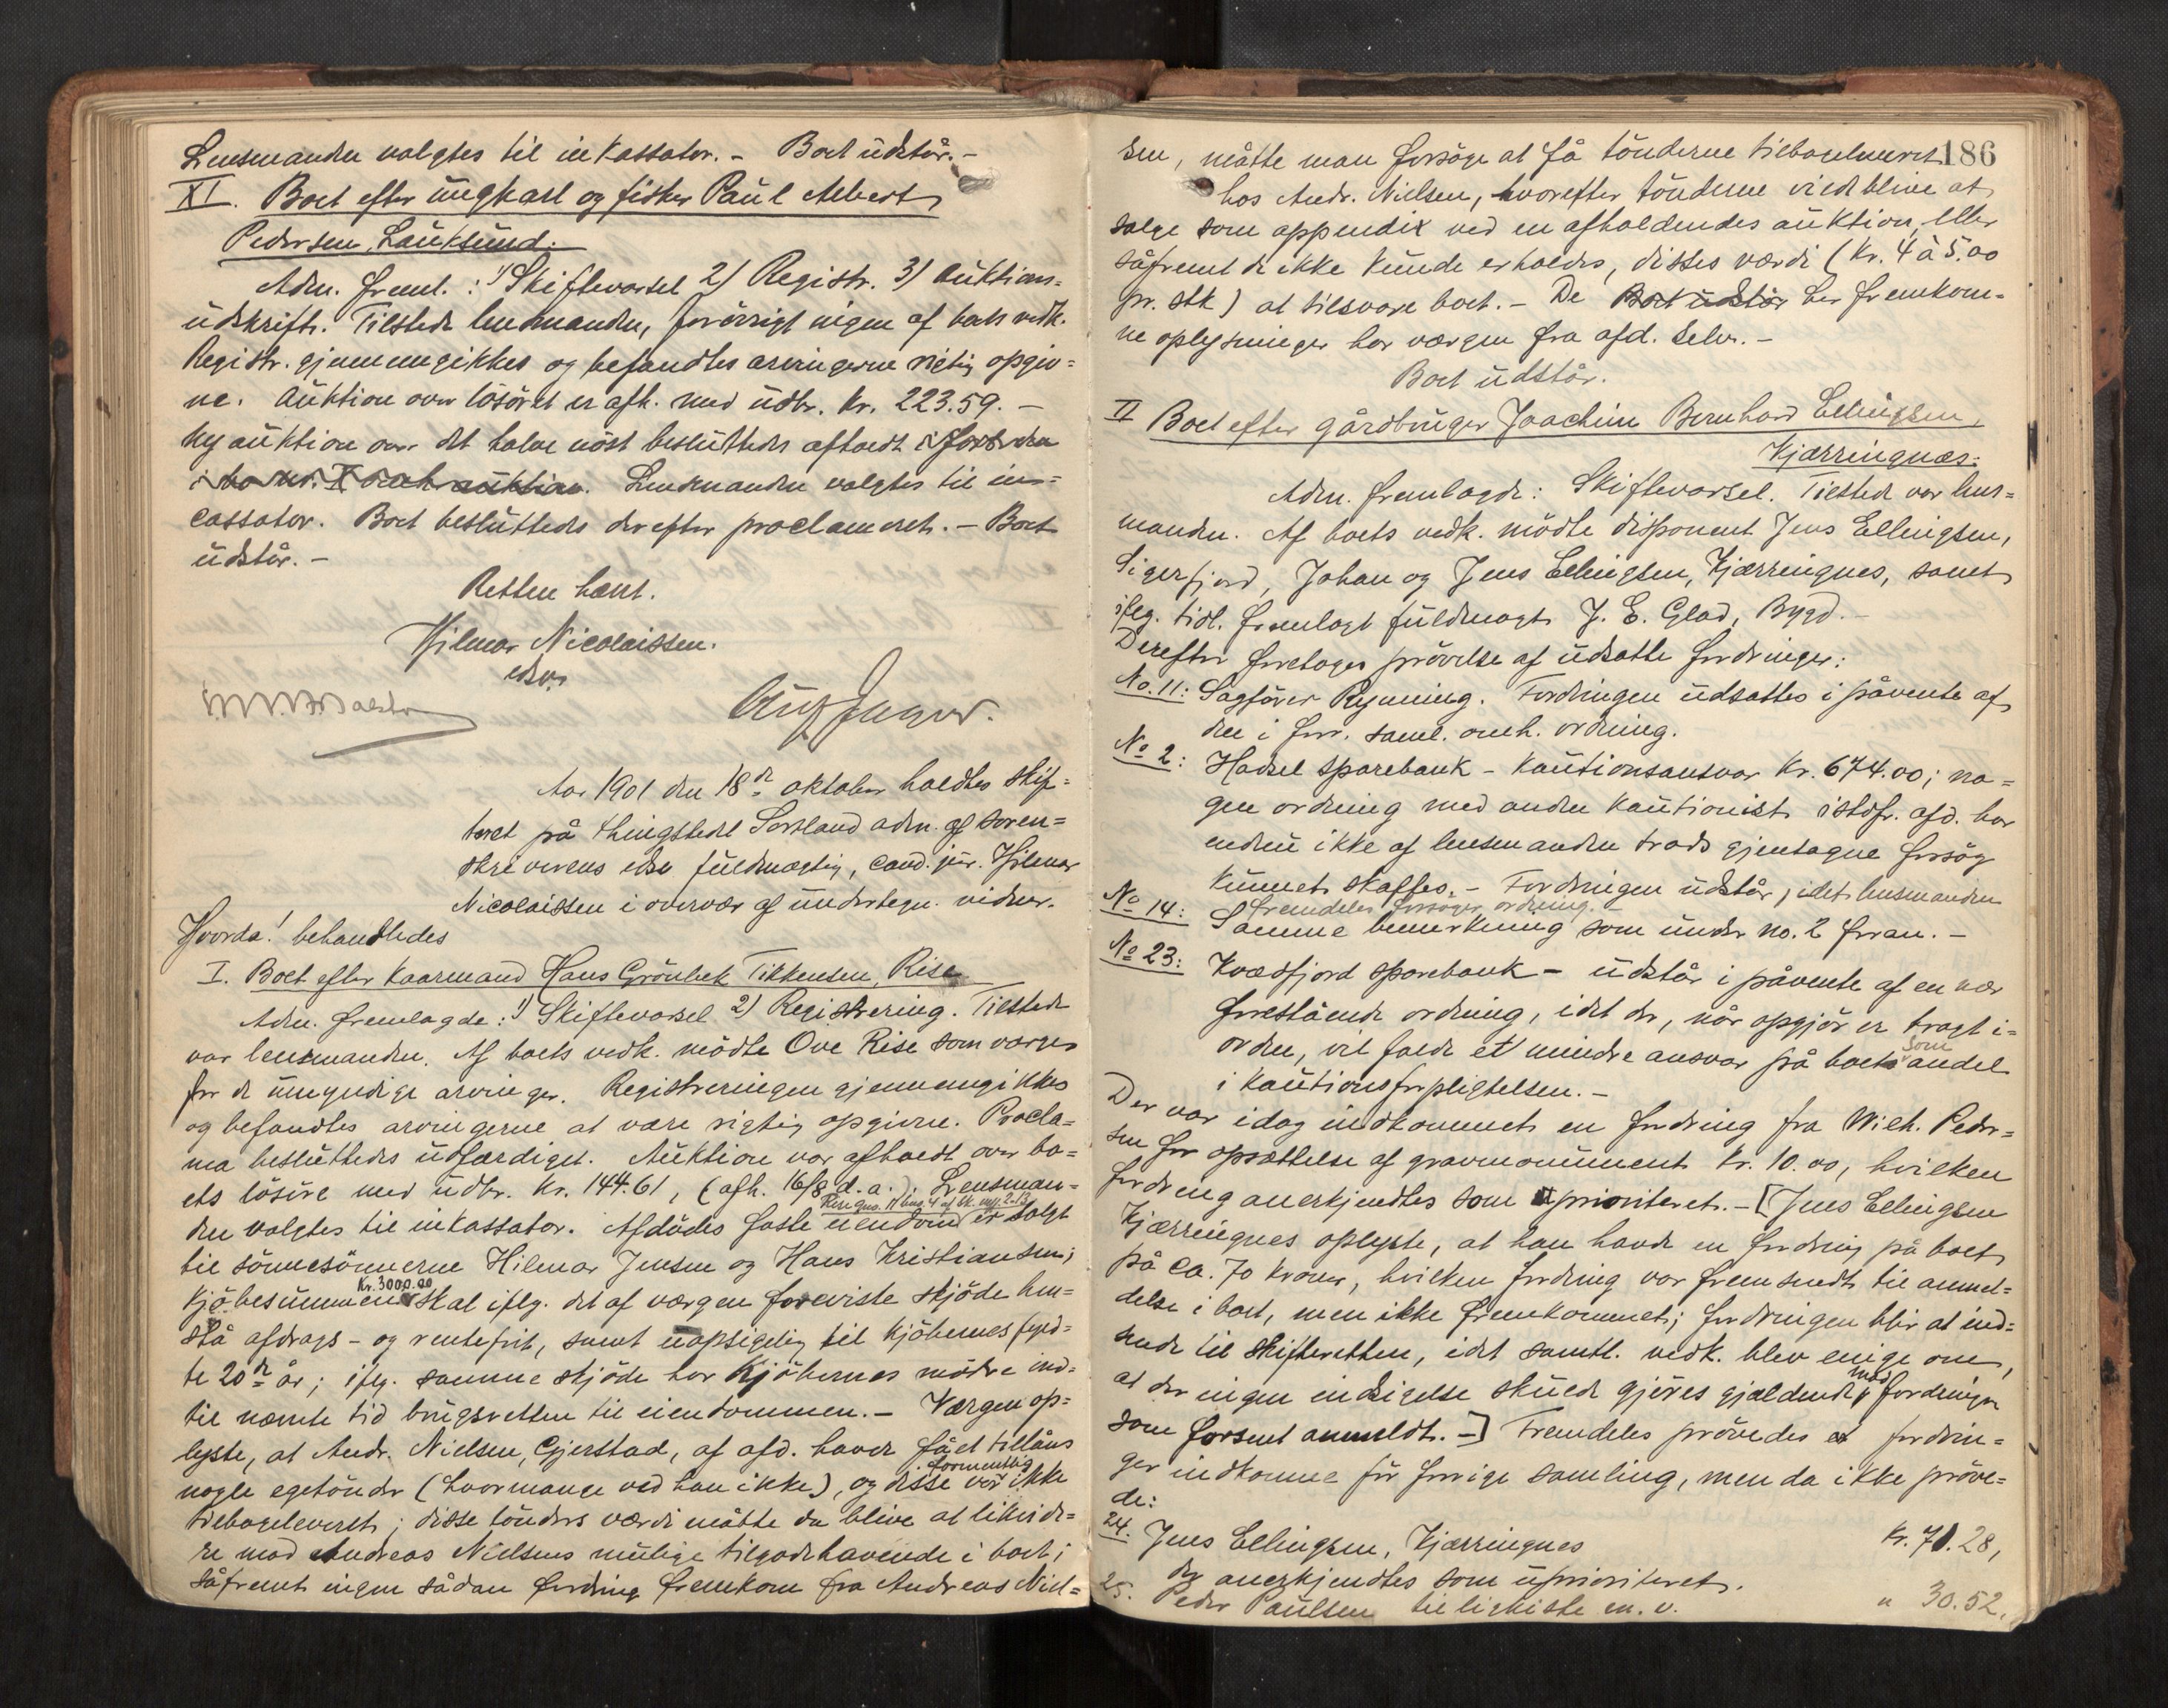 Lensmanden valgtes til inkassator. - Boet udstår. -
XI. Boet efter ungkarl og fisker Paul Albert
Pedersen, Lauksund.
Adm. freml.: 1) Skiftevarsel 2) Registr. 3) Auktions-
udskrift. Tilstede lensmanden, forövrigt ingen af boets vedk.
Registr. gjennemgikkes og befandtes arvingerne rigtig opgiv-
ne. Auktion over lösöret er afh. med udbr. Kr. 223.59. -
Ny auktion over det halve nöst besluttedes afholdt
Lensmanden valgtes til in-
cassator. Boet besluttedes derefter proclameret. - Boet
udstår. -
Retten hævt.
Hilmar Nicolaissen.
edsv.
Aar 1901 den 18de oktober holdtes skif-
teret på thingstedet Sortland adm. af soren-
skriverens edsv. fuldmægtig, cand. jur. Hilmar
Nicolaissen i overvær af undertegn. vidner.
Hvorda! behandledes
I. Boet efter kaarmand Hans Grönbek Tikkensen, Rise
Adm. fremlagde: 1) Skiftevarsel 2) Registrering. Tilstede
var lensmanden. Af boets vedk. mödte Ove Rise som værge
for de umyndige arvinger. Registreringen gjennemgikkes
og befandtes arvingerne at være rigtig opgivne. Procla-
ma besluttedes udfærdiget. Auktion var afholdt over bo-
ets lösöre med udbr. Kr. 144.61, (afh. 16/8 d. a.). Lensman-
den valgtes til inkassator. Afdödes faste eiendom er solgt
til sönnesönnerne Hilmar Jensen og Hans Kristiansen;
Kjöbesummen Kr. 3000.00 skal iflg. det af værgen foreviste skjöde hen-
stå afdrags- og rentefrit, samt uopsigelig til kjöbernes fyld-
te 20de år; iflg. samme skjöde har kjöbernes mödre ind-
til nævnte tid brugsretten til eiendommen. - Værgen op-
lyste, at Andr. Nielsen, Gjerstad, af afd. havde fået tillåns
nogle egetönder (hvormange ved han ikke), og disse var formentlig ikke
tilbageleveret; disse tönders værdi måtte da blive at likvide-
re mod Andreas Nielsens mulige tilgodehavende i boet;
såfremt ingen sådan fordring fremkom fra Andreas Niel-
186
sen, måtte man forsöge at få tönderne tilbageleveret
hos Andr. Nielsen, hvorefter tönderne vilde blive at
sælge som appendix ved en afholdendes auktion, eller
såfremt de ikke kunde erholdes, disses værdi (Kr. 4 à 5.00
pr. stk) at tilsvare boet. - De Boet udstår her fremkom-
ne oplysninger har værgen fra afd. selv. -
Boet udstår.
II Boet efter gårdbruger Joachim Bernhard Ellingsen,
Kjærringnæs:
Adm. fremlagde: Skiftevarsel. Tilstede var lens-
manden. Af boets vedk. mödte disponent Jens Ellingsen,
Sigerfjord, Johan og Jens Ellingsen, Kjærringnes, samt
iflg. tidl. fremlagt fuldmagt J. E. Glad, Bygd. -
Derefter foretoges prövelse af udsatte fordringer:
No. 11: Sagförer Rynning. Fordringen udsattes i påvente af
den i forr. saml. omh. ordning.
No 2: Hadsel sparebank - kautionsansvar Kr. 674.00; no-
gen ordning med anden kautionist istdf. afd. har
endnu ikke af lensmanden trods gjentagne forsög
kunnet skaffes. - Fordringen udstår, idet lensmanden
fremdeles forsöger ordning.
No 14: Samme bemerkning som under no. 2 foran. -
No 23: Kvædfjord sparebank - udstår i påvente af en nær
forestående ordning, idet der, når opgjör er bragt i-
orden, vil falde et mindre ansvar på boet som andel
i kautionsforpligtelsen. -
Der var idag indkommet en fordring fra Wilh. Peder-
sen for opsættelse af gravmonument Kr. 10.00, hvilken
fordring anerkjendtes som prioriteret. - [Jens Ellingsen
Kjærringnes oplyste, at han havde en fordring på boet
på ca. 70 kroner, hvilken fordring var fremsendt til anmel-
delse i boet, men ikke fremkommet; fordringen blir at ind-
sende til skifteretten, idet samtl. vedk. blev enige om,
at der ingen indsigelse skulde gjöres gjældende mod fordringen
som forsent anmeldt. -] Fremdeles prövedes fordrin-
ger indkomne för forrige samling, men da ikke pröve-
de:
24. Jens Ellingsen, Kjærringnes Kr. 71.28,
anerkjendtes som uprioriteret.
25. Peder Paulsen til ligkiste m. v. " 30.52.